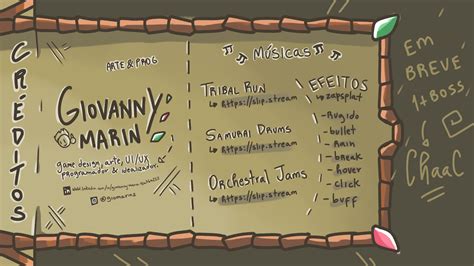 CRÉDITOS
ARTE & PROG
GIOVANNY
MARIN
game design, arte, UI/UX
programador & idealizador
Músicas
TRIBAL RUN
https://slip.stream
SAMURAI DRUMS
https://slip.stream
ORCHESTRAL JAMS
https://slip.stream
EFEITOS
zapsplat
- Rugido
- bullet
- Rain
- break
- hover
- click
- buff
EM
BREVE
1+BOSS
CHAAC